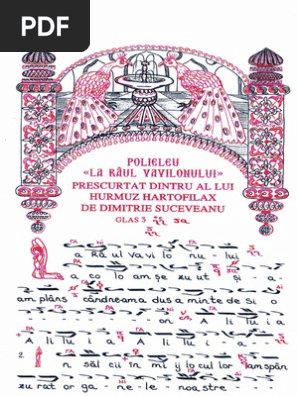 PDF
POLIELEU
«LA RÂUL VAVILONULUI»
PRESCURTAT DINTRU AL LUI
HURMUZ HARTOFILAX
DE DIMITRIE SUCEVEANU
GLAS 3
a Râ ul Va vi lo nu - lui
a co lo am șe zu ut și - a -
am plâns când ne am a dus a minte de Si o
on A li lu i a
A li lu i a A li lu i a
2. n săl cii în mij lo cul lor am spân
zu rat or ga - ne - le - noa stre - - -